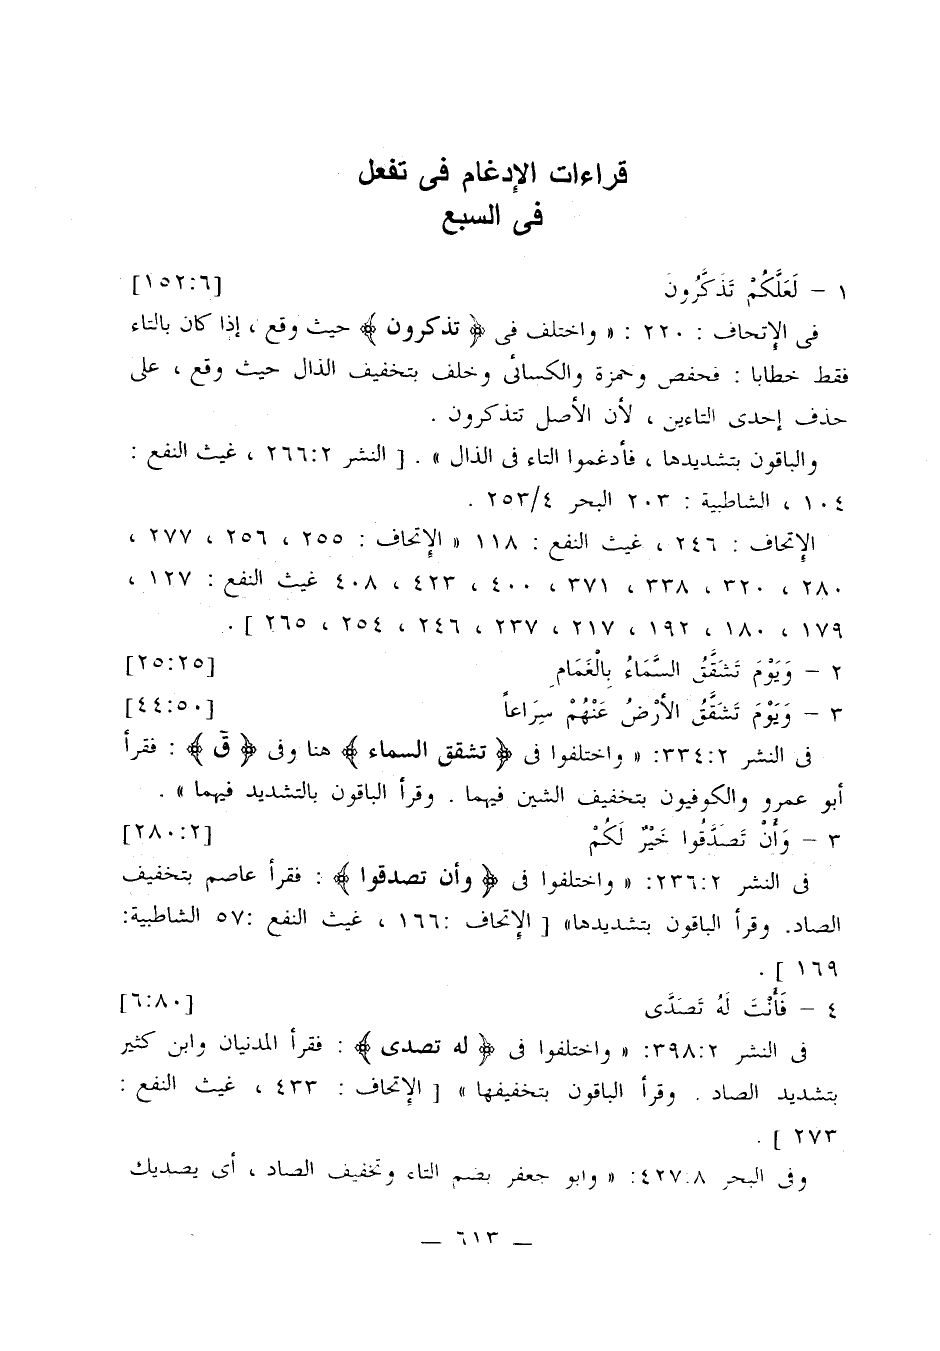 قراءات الإدغام فى تفعل
فى السبع
١ – لَعَلَّكُمْ تَذَكَّرُونَ [١٥٢:٦]
فى الإتحاف : ٢٢٠ : « واختلف فى ﴿ تذكرون ﴾ حيث وقع ، إذا كان بالتاء
فقط خطابا : فحفص وحمزة والكسائى وخلف بتخفيف الذال حيث وقع ، على
حذف إحدى التاءين ، لأن الأصل تتذكرون .
والباقون بتشديدها ، فأدغموا التاء فى الذال » . [ النشر ٢٦٦:٢ ، غيث النفع :
١٠٤ ، الشاطبية : ٢٠٣ البحر ٢٥٣/٤ .
الإتحاف : ٢٤٦ ، غيث النفع : ١١٨ « الإتحاف : ٢٥٥ ، ٢٥٦ ، ٢٧٧ ،
٢٨٠ ، ٣٢٠ ، ٣٣٨ ، ٣٧١ ، ٤٠٠ ، ٤٢٣ ، ٤٠٨ غيث النفع : ١٢٧ ،
١٧٩ ، ١٨٠ ، ١٩٢ ، ٢١٧ ، ٢٣٧ ، ٢٤٦ ، ٢٥٤ ، ٢٦٥ ] .
٢ – وَيَوْمَ تَشَقَّقُ السَّمَاءُ بِالْغَمَامِ [٢٥:٢٥]
٣ – وَيَوْمَ تَشَقَّقُ الأَرْضُ عَنْهُمْ سِرَاعاً [٤٤:٥٠]
فى النشر ٣٣٤:٢: « واختلفوا فى ﴿ تشقق السماء ﴾ هنا وفى ﴿ قٓ ﴾ : فقرأ
أبو عمرو والكوفيون بتخفيف الشين فيهما . وقرأ الباقون بالتشديد فيهما » .
٣ – وَأَنْ تَصَدَّقُوا خَيْرٌ لَكُمْ [٢٨٠:٢]
فى النشر ٢٣٦:٢: « واختلفوا فى ﴿ وأن تصدقوا ﴾ : فقرأ عاصم بتخفيف
الصاد. وقرأ الباقون بتشديدها» [ الإتحاف :١٦٦ ، غيث النفع :٥٧ الشاطبية:
١٦٩ ] .
٤ – فَأَنْتَ لَهُ تَصَدَّى [٦:٨٠]
فى النشر ٣٩٨:٢: « واختلفوا فى ﴿ له تصدى ﴾ : فقرأ المدنيان وابن كثير
بتشديد الصاد . وقرأ الباقون بتخفيفها » [ الإتحاف : ٤٣٣ ، غيث النفع :
٢٧٣ ] .
وفى البحر ٤٢٧:٨: « وابو جعفر بضم التاء وتخفيف الصاد ، أى يصديك
— ٦١٣ —